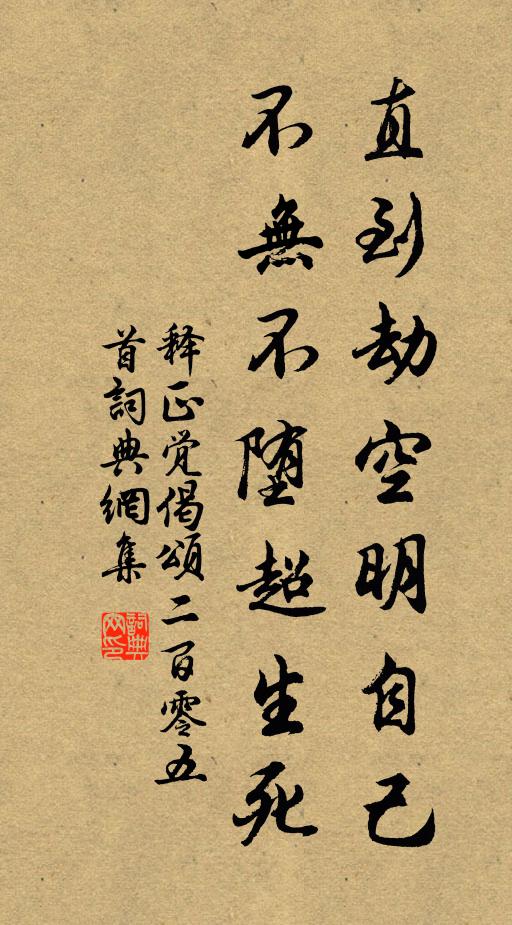 直到劫空明自己
不無不堕超生死
释正覚偈頌二百零五
首詞典網集
詞典网印